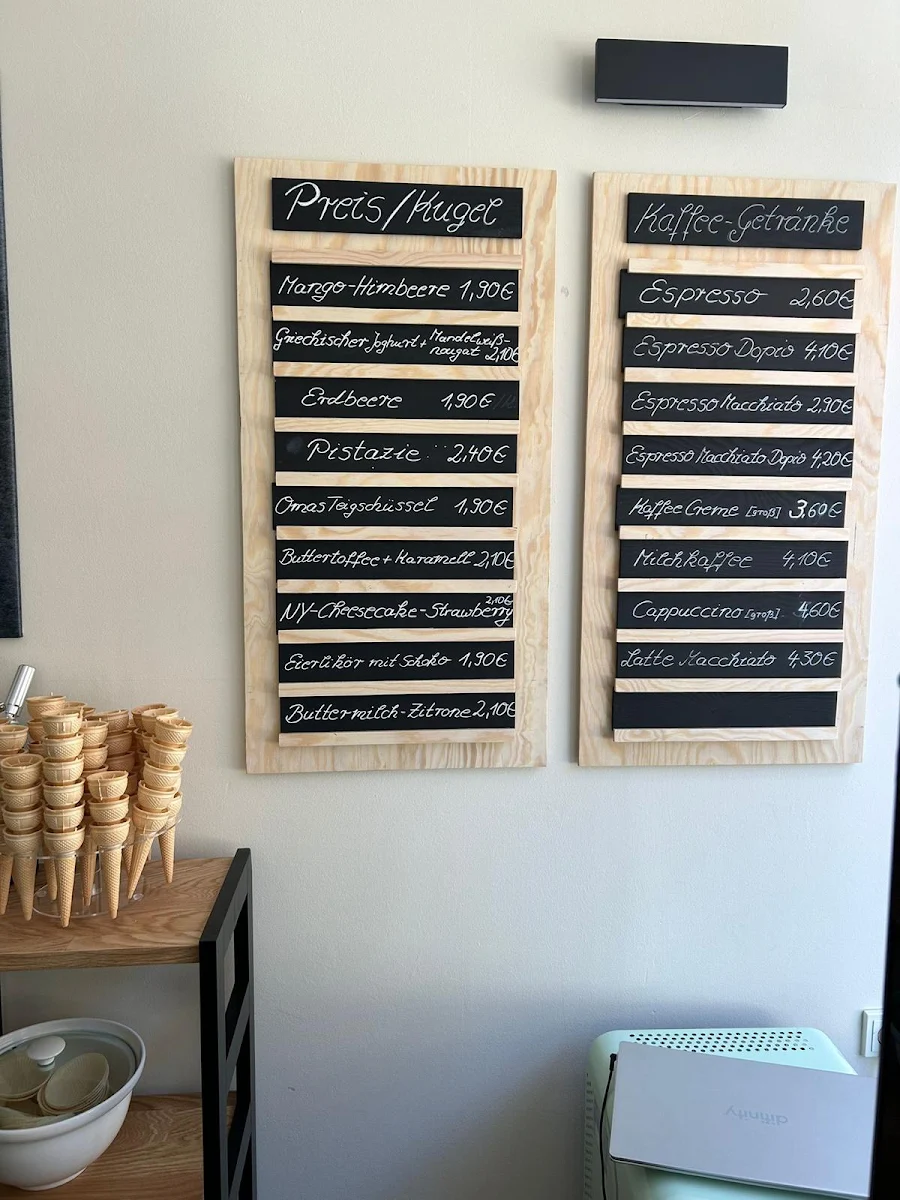 Preis/Kugel
Mango-Himbeere 1,90€
Griechischer Joghurt + Mandelweiß-
nougat 2,10€
Erdbeere 1,90€
Pistazie 2,40€
Omas Teigschüssel 1,90€
Buttertoffee + Karamell 2,10€
2,10€
NY-Cheesecake-Strawberry
Eierlikör mit Schoko 1,90€
Buttermilch-Zitrone 2,10€
Kaffee-Getränke
Espresso 2,60€
Espresso Dopio 4,10€
Espresso Macchiato 2,90€
Espresso Macchiato Dopio 4,20€
Kaffee Creme [groß] 3,60€
Milchkaffee 4,10€
Cappuccino [groß] 4,60€
Latte Macchiato 4,30€
difinity